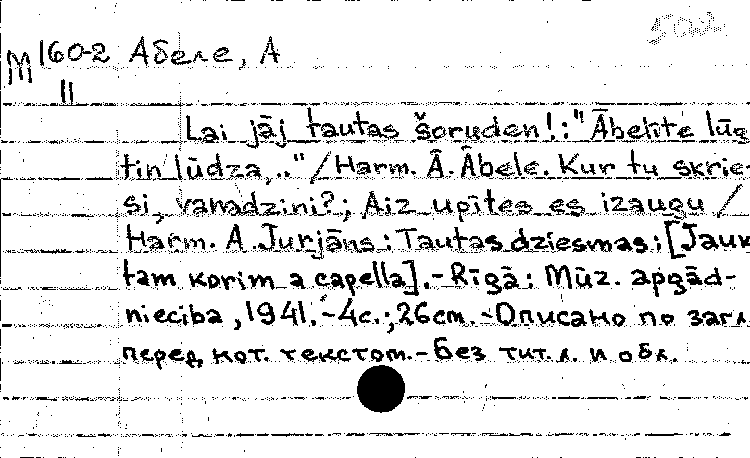 М160-2 Абеле, А
II
Lai jāj tautas šoruden!:"Ābelīte lūg
tin lūdza,.."/Harm. Ā. Ābele. Kur tu skrie-
si, vanadziņi?; Aiz upītes es izaugu /
Harm. A. Jurjāns: Tautas dziesmas: [Jauk
tam korim a capella].-Rīgā: Mūz. apgād-
niecība, 1941.-4с.; 26cm.-Описано по загл
перед нот. текстом.-Без тит.л. и обл.